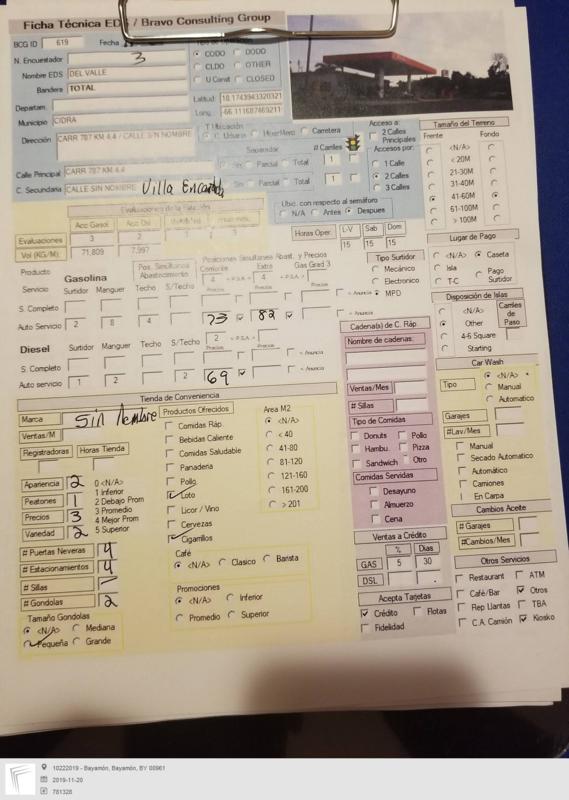 Ficha Técnica EDS / Bravo Consulting Group
BCG ID 619 Fecha
N. Encuestador 3
CODO DODO
CLDO OTHER
U Const CLOSED
Nombre EDS DEL VALLE
Bandera TOTAL
Departam.
Municipio CIDRA
Latitud: 18.1743943320321
Long.: -66.111687469211
Dirección CARR 787 KM 4.4 / CALLE SIN NOMBRE
T Ubicación
C. Urbano HiperMayo Carretera
Separador # Carriles
Calle Principal CARR 787 KM 4.4 Sin Parcial Total 1
C. Secundaria CALLE SIN NOMBRE Villa Encantada Sin Parcial Total 1
Ubic. con respecto al semáforo
N/A Antes Despues
Acceso a:
2 Calles Principales
Accesos por:
1 Calle
2 Calles
3 Calles
Tamaño del Terreno
Frente Fondo
<N/A>
< 20M
21-30M
31-40M
41-60M
61-100M
> 100M
Evaluaciones de la Estación
Acc Gasol Acc Dsl
Evaluaciones 3 2 3 3
Vol (KG/M): 71,809 7,997
Horas Oper. L-V Sab Dom
15 15 15
Lugar de Pago
<N/A> Caseta
Isla Pago Surtidor
T-C
Tipo Surtidor
Mecánico
Electronico
MPD
Disposición de Islas
<N/A>
Other
4-6 Square
Starting
Carriles de Paso
Producto Gasolina
Pos. Simultanea Abastecimiento
Posiciones Simultanea Abast. y Precios
Corriente Extra Gas Grad 3
Servicio Surtidor Manguer Techo S/Techo
4 4
Precios Precios Precios
S. Completo < Anuncia
Auto Servicio 2 8 4 73 82 < Anuncia
Diesel Surtidor Manguer Techo S/Techo
2
Precios Precios
S. Completo < Anuncia
Auto servicio 1 2 2 69 < Anuncia
Cadena(s) de C. Ráp
Nombre de cadenas:
Ventas/Mes
# Sillas
Tipo de Comidas
Donuts Pollo
Hambu. Pizza
Sandwich Otro
Comidas Servidas
Desayuno
Almuerzo
Cena
Car Wash
Tipo <N/A>
Manual
Automatico
Garajes
#Lav/Mes
Manual
Secado Automatico
Automático
Camiones
En Carpa
Cambios Aceite
# Garajes
#Cambios/Mes
Tienda de Conveniencia
Marca Sin Nombre
Ventas/M
Registradoras Horas Tienda
Apariencia 2
Peatones 1
Precios 3
Variedad 2
0 <N/A>
1 Inferior
2 Debajo Prom
3 Promedio
4 Mejor Prom
5 Superior
# Puertas Neveras 4
# Estacionamientos 4
# Sillas -
# Gondolas 2
Tamaño Gondolas
<N/A> Mediana
Pequeña Grande
Productos Ofrecidos
Comidas Ráp.
Bebidas Caliente
Comidas Saludable
Panaderia
Pollo
Loto
Licor / Vino
Cervezas
Cigarrillos
Area M2
<N/A>
< 40
41-80
81-120
121-160
161-200
> 201
Café
<N/A> Clasico Barista
Promociones
<N/A> Inferior
Promedio Superior
Ventas a Crédito
% Dias
GAS 5 30
DSL .
Acepta Tarjetas
Crédito Flotas
Fidelidad
Otros Servicios
Restaurant ATM
Café/Bar Otros
Rep Llantas TBA
C.A. Camión Kiosko
10222019 - Bayamón, Bayamón, BY 00961
2019-11-20
781328